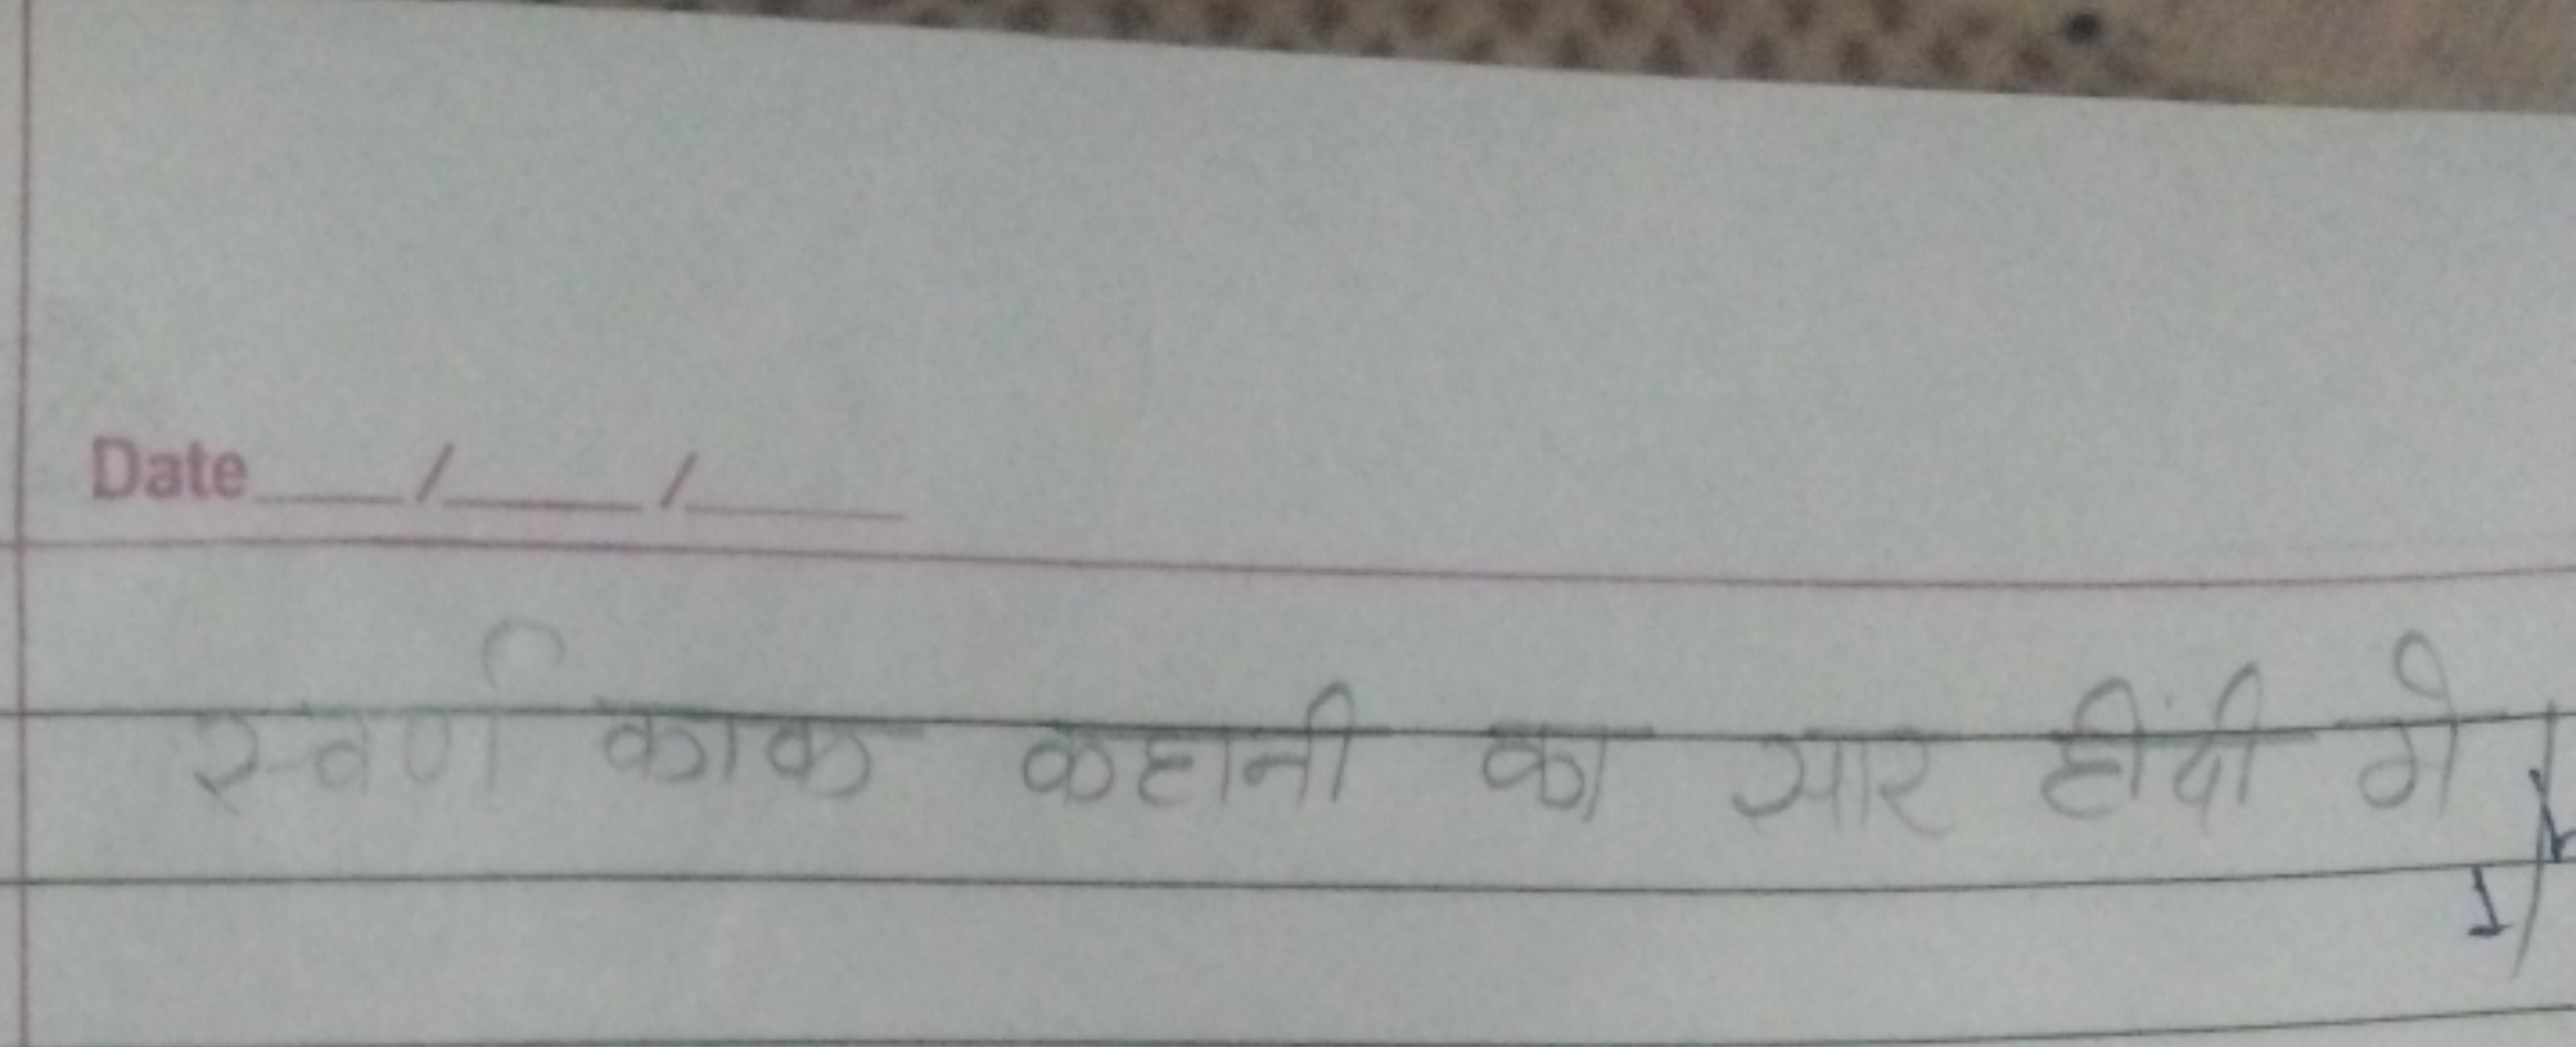 Date___/___/___
स्वर्ण काक कहानी का सार हींदी मे
1